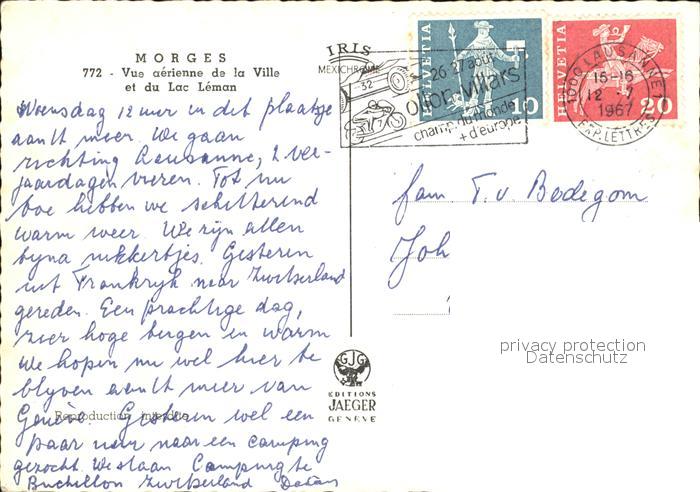 MORGES
772 - Vue aérienne de la Ville
et du Lac Léman
IRIS
MEXICHROME
Woensdag 12 uur in dit plaatje
aan 't meer. We gaan
richting Lausanne, 2 ver-
jaardagen vieren. Tot nu
toe hebben we schitterend
warm weer. We zijn allen
byna nikkertjes. Gisteren
uit Frankryk naar Zwitserland
gereden. Een prachtige dag,
zeer hoge bergen en warm
We hopen nu wel hier te
blyven aan 't meer van
Genève. Gisteren wel een
paar uur naar een camping
gezocht. We staan Camping te
Buchillon Zwitserland
Reproduction interdite
32
26 27 août
ollon-villars
champ. du monde
+ d'europe
HELVETIA
10
HELVETIA
20
1000 LAUSANNE
15-16
12 7
1967
EXP. LETTRES
fam T. v Bodegom
Joh
GJG
EDITIONS
JAEGER
GENEVE
privacy protection
Datenschutz